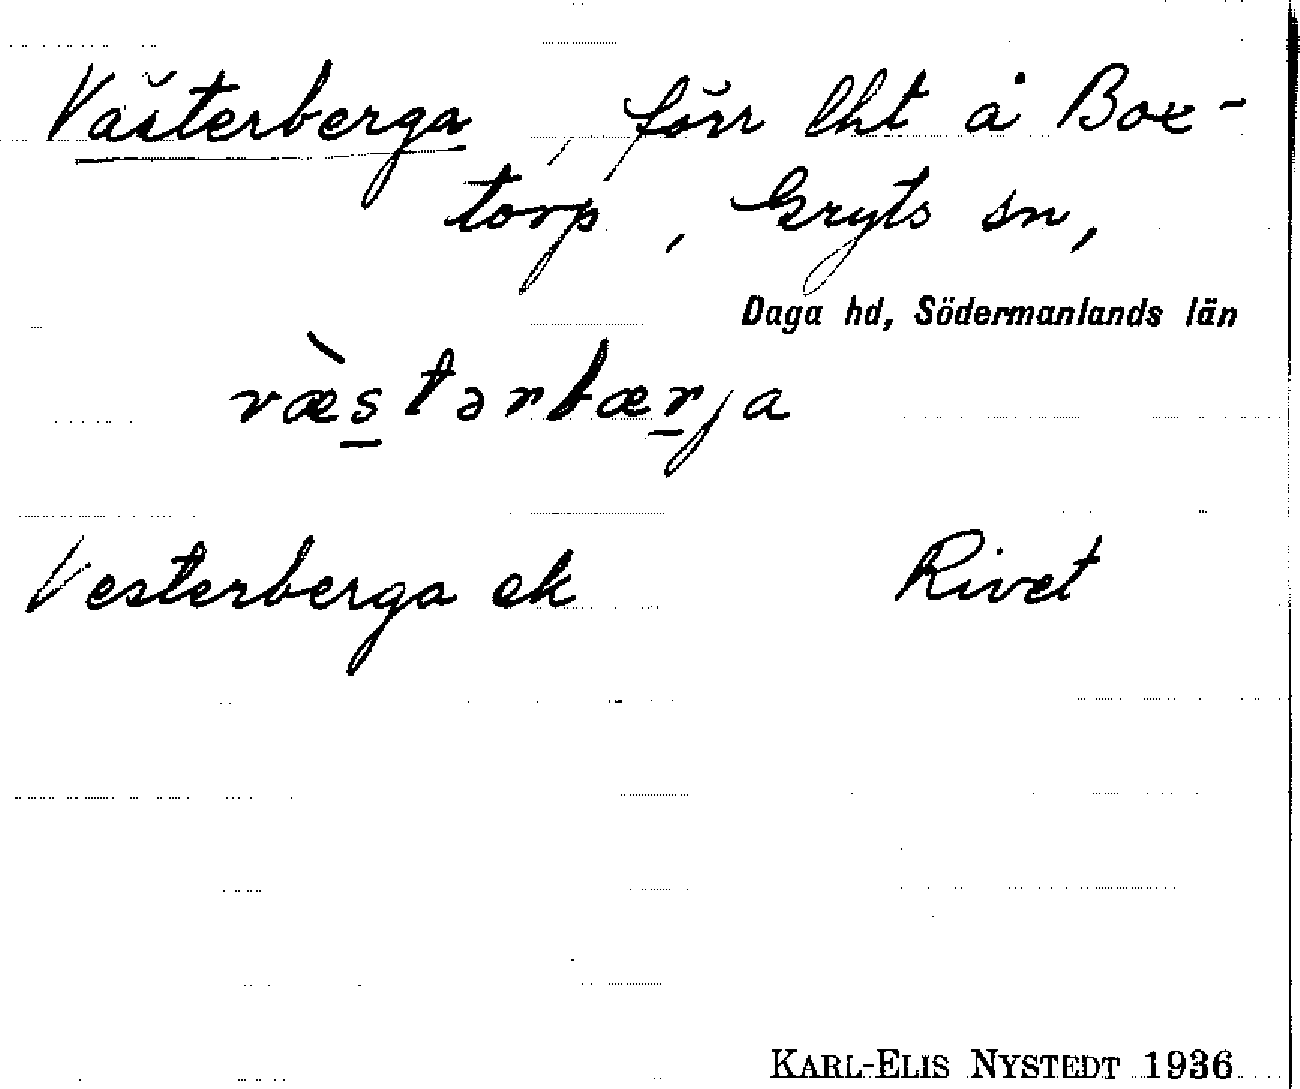 Västerberga, förr lht å Box-
torp, Gryts sn,
Daga hd, Södermanlands län
væ̀stərbærja
Vesterberga ek Rivet
KARL-ELIS NYSTEDT 1936